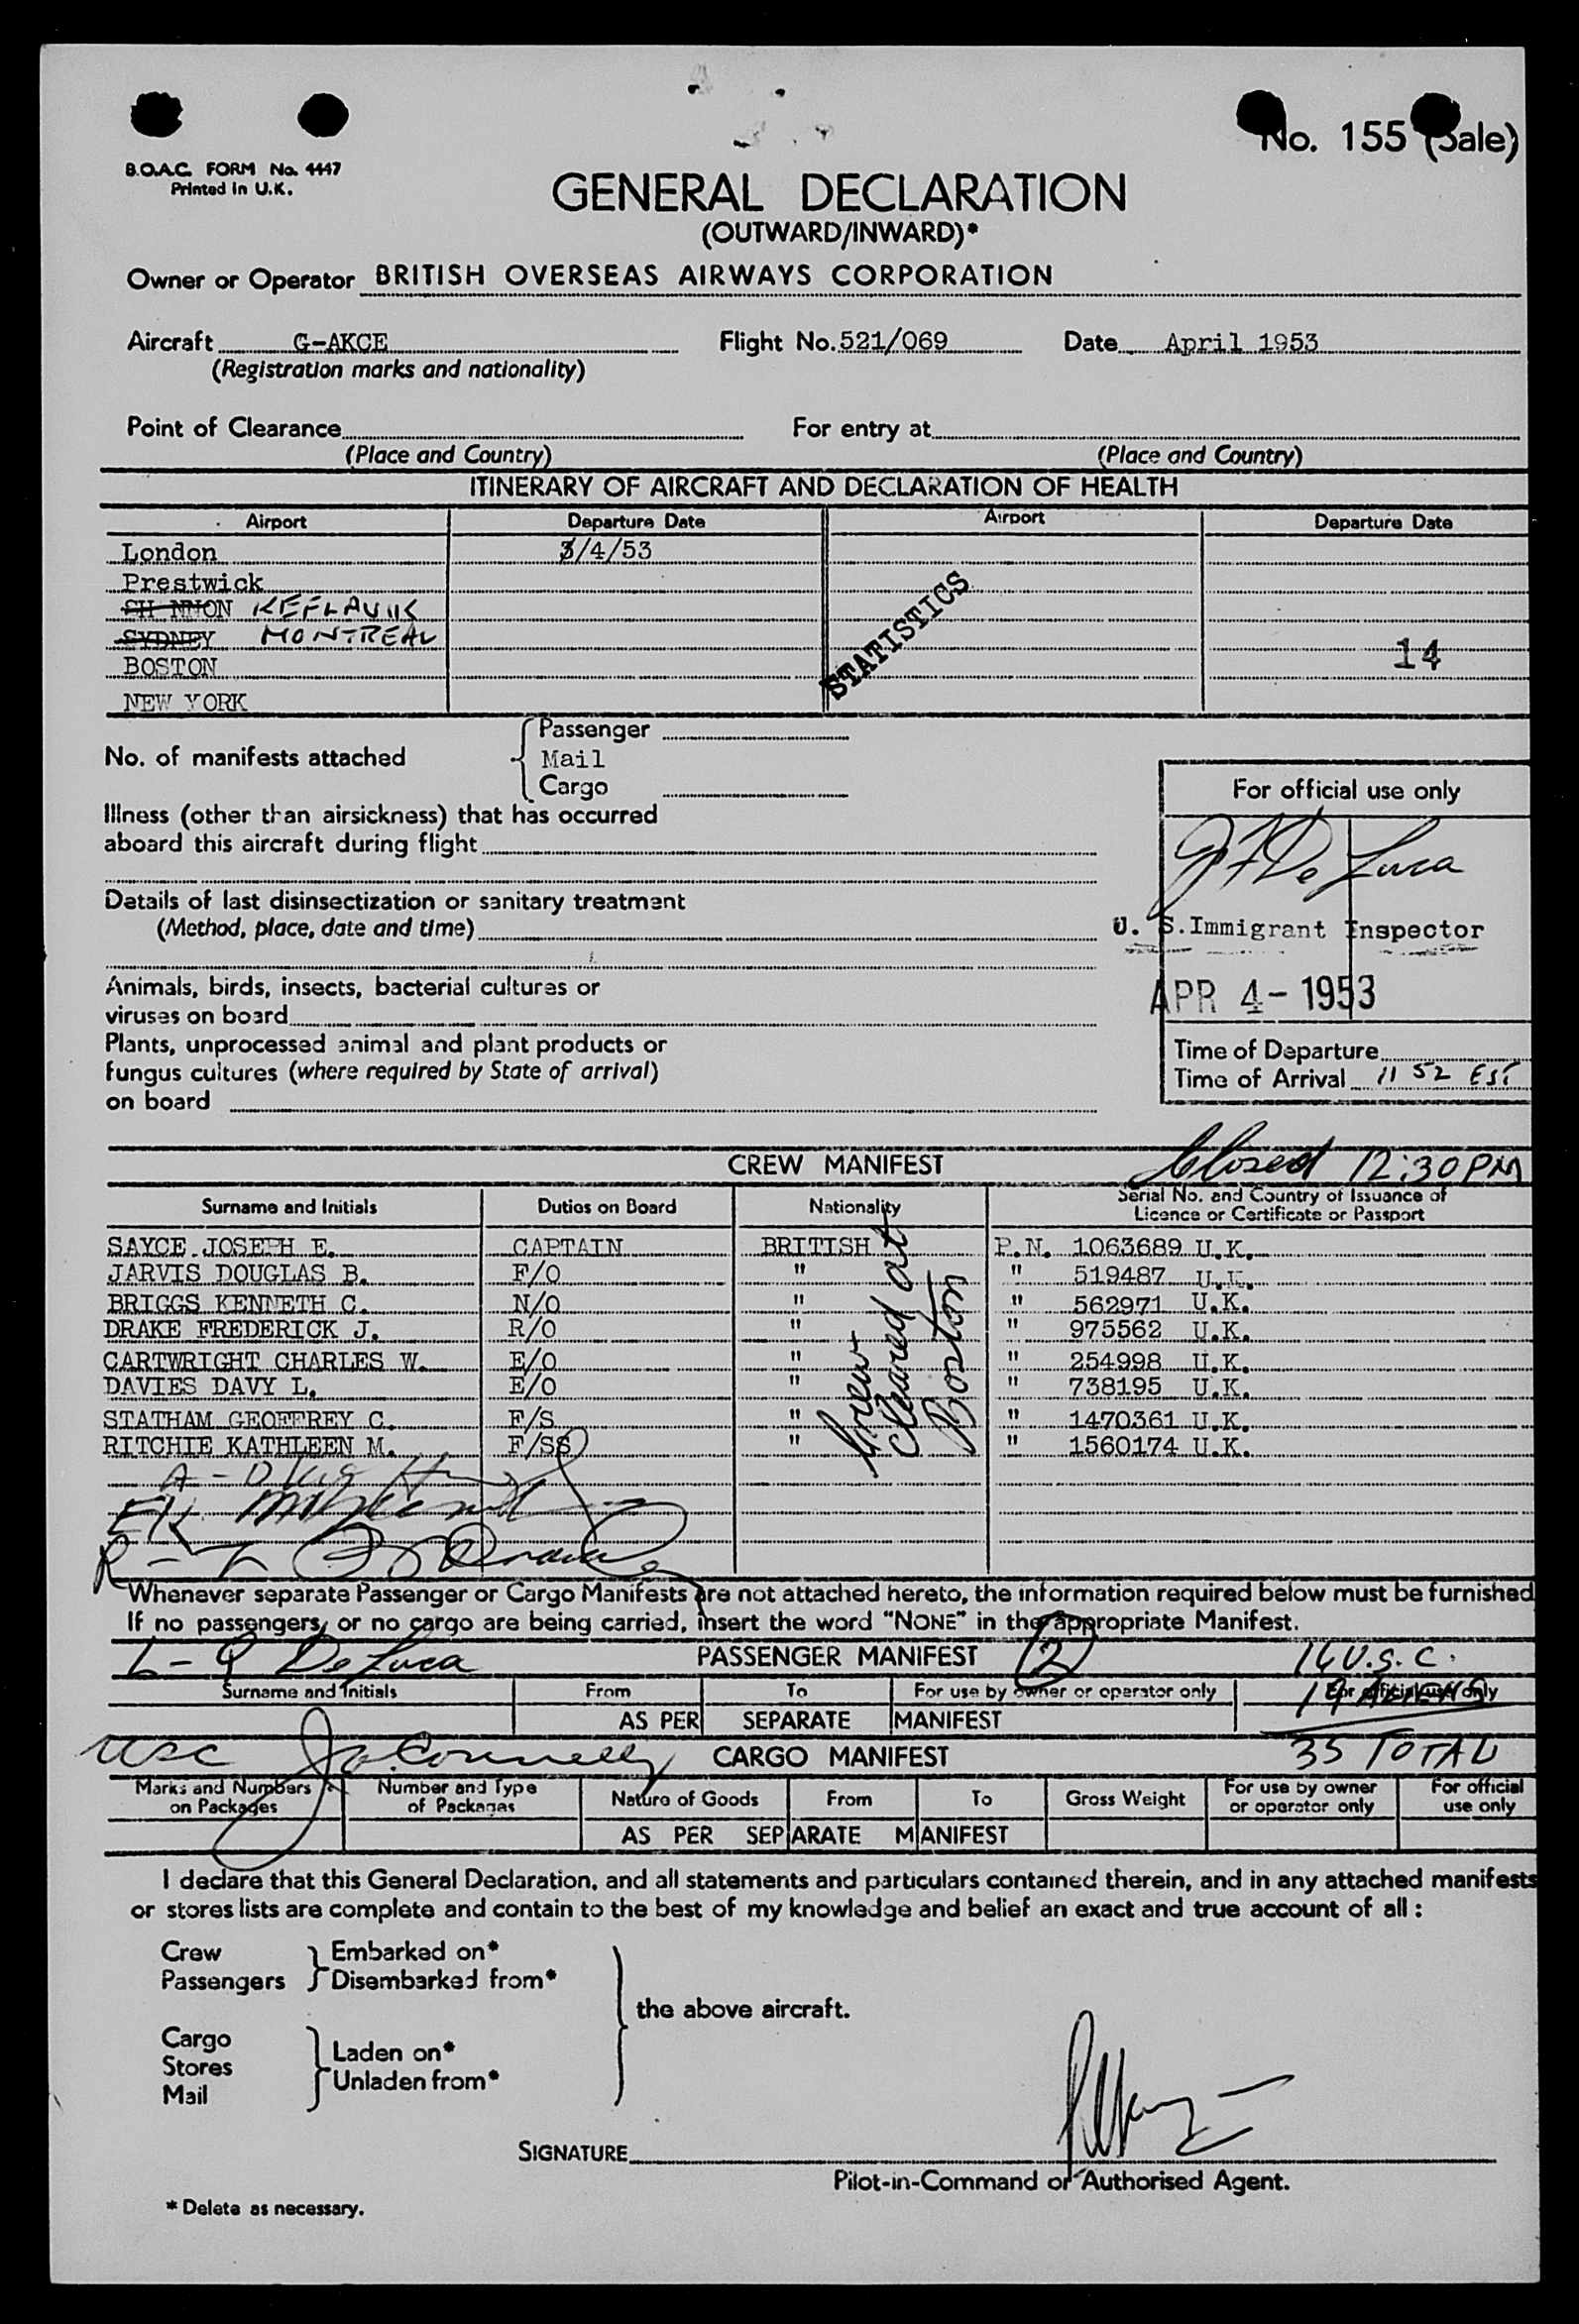 No. 155 (Sale)
B.O.A.C. FORM No. 4447
Printed in U.K.
GENERAL DECLARATION
(OUTWARD/INWARD)*
Owner or Operator BRITISH OVERSEAS AIRWAYS CORPORATION
Aircraft G-AKCE Flight No. 521/069 Date April 1953
(Registration marks and nationality)
Point of Clearance For entry at
(Place and Country) (Place and Country)
ITINERARY OF AIRCRAFT AND DECLARATION OF HEALTH
Airport Departure Date Airport Departure Date
London 3/4/53
Prestwick
SH NNON KEFLAVIK
SYDNEY MONTREAL
STATISTICS
BOSTON 14
NEW YORK
No. of manifests attached
Passenger
Mail
Cargo
Illness (other than airsickness) that has occurred
aboard this aircraft during flight
Details of last disinsectization or sanitary treatment
(Method, place, date and time)
Animals, birds, insects, bacterial cultures or
viruses on board
Plants, unprocessed animal and plant products or
fungus cultures (where required by State of arrival)
on board
For official use only
J F De Luca
U. S. Immigrant Inspector
APR 4 - 1953
Time of Departure
Time of Arrival 11 52 EST
Closed 12:30 PM
CREW MANIFEST
Surname and Initials Duties on Board Nationality Serial No. and Country of Issuance of Licence or Certificate or Passport
SAYCE JOSEPH E. CAPTAIN BRITISH P.N. 1063689 U.K.
JARVIS DOUGLAS B. F/O " " 519487 U.K.
BRIGGS KENNETH C. N/O " " 562971 U.K.
DRAKE FREDERICK J. R/O " " 975562 U.K.
CARTWRIGHT CHARLES W. E/O " " 254998 U.K.
DAVIES DAVY L. E/O " " 738195 U.K.
STATHAM GEOFFREY C. F/S " " 1470361 U.K.
RITCHIE KATHLEEN M. F/SS " " 1560174 U.K.
Crew
Cleared at
Boston
Whenever separate Passenger or Cargo Manifests are not attached hereto, the information required below must be furnished
If no passengers, or no cargo are being carried, insert the word "NONE" in the appropriate Manifest.
L - J De Luca PASSENGER MANIFEST (2) 16 U.S.C.
Surname and Initials From To For use by owner or operator only For official use only
19 ALIENS
AS PER SEPARATE MANIFEST
USC J. O'Connelly CARGO MANIFEST 35 TOTAL
Marks and Numbers on Packages Number and Type of Packages Nature of Goods From To Gross Weight For use by owner or operator only For official use only
AS PER SEPARATE MANIFEST
I declare that this General Declaration, and all statements and particulars contained therein, and in any attached manifests
or stores lists are complete and contain to the best of my knowledge and belief an exact and true account of all :
Crew
Passengers
Embarked on*
Disembarked from*
the above aircraft.
Cargo
Stores
Mail
Laden on*
Unladen from*
SIGNATURE
Pilot-in-Command or Authorised Agent.
* Delete as necessary.